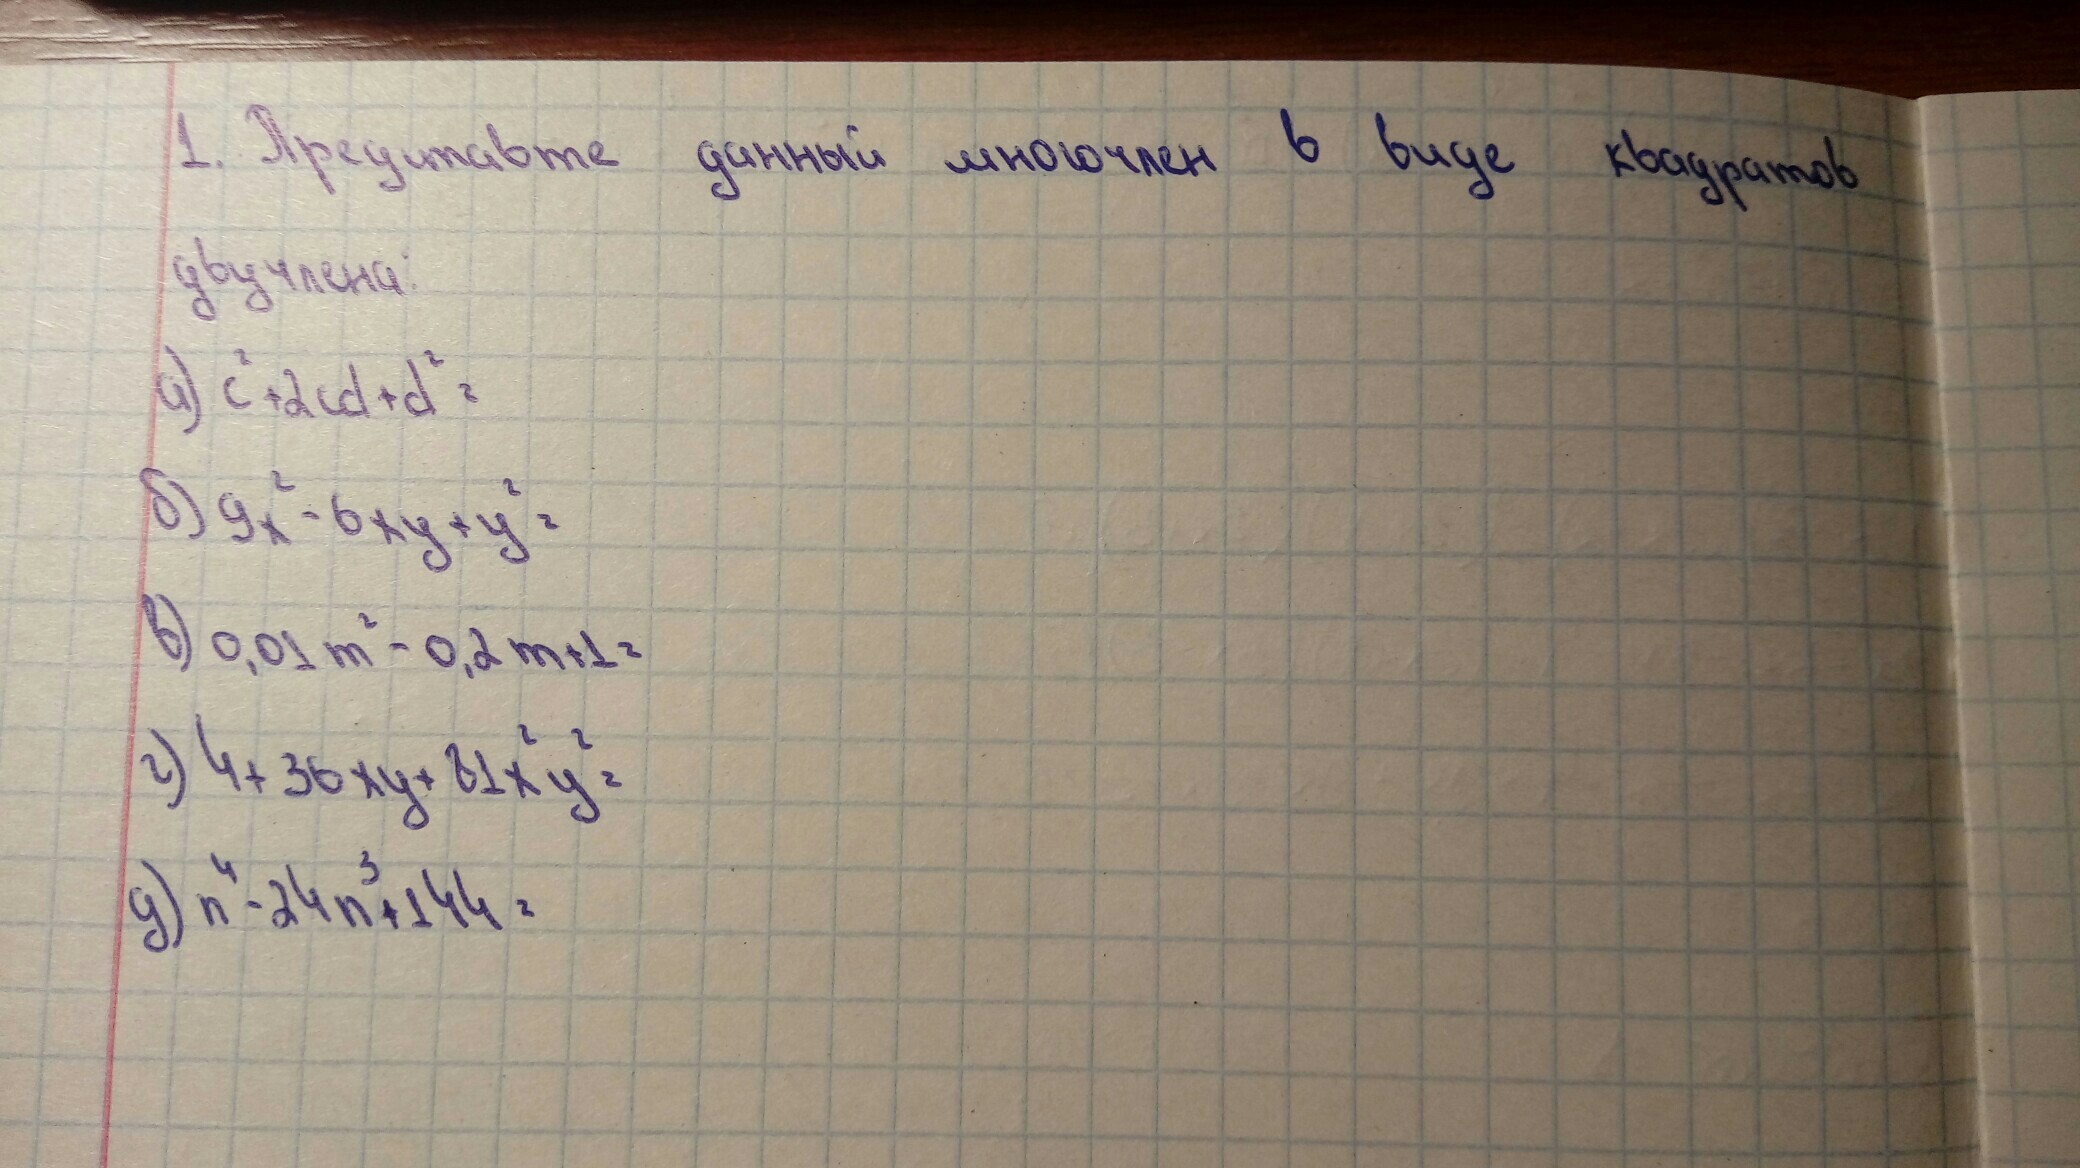 1. Представте данный многочлен в виде квадратов
двучлена:
а) c²+2cd+d²=
б) 9x²-6xy+y²=
в) 0,01m²-0,2m+1=
г) 4+36xy+81x²y²=
д) n⁴-24n³+144=